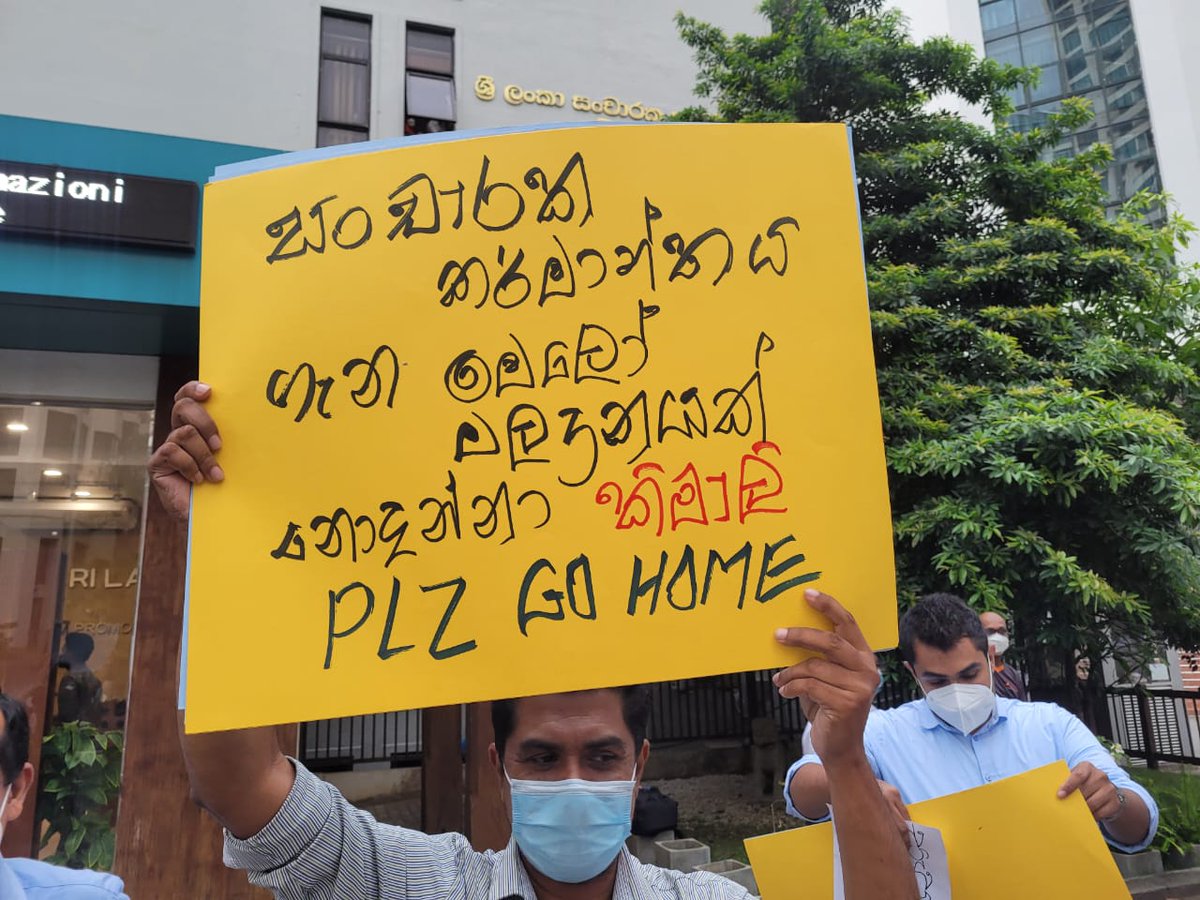 ශ්‍රී ලංකා සංචාරක
mazioni
සංචාරක
කර්මාන්තය
ගැන මෙලෝ
නොදන්නා කිමාලි
PLZ GO HOME
RI LA
PROMO